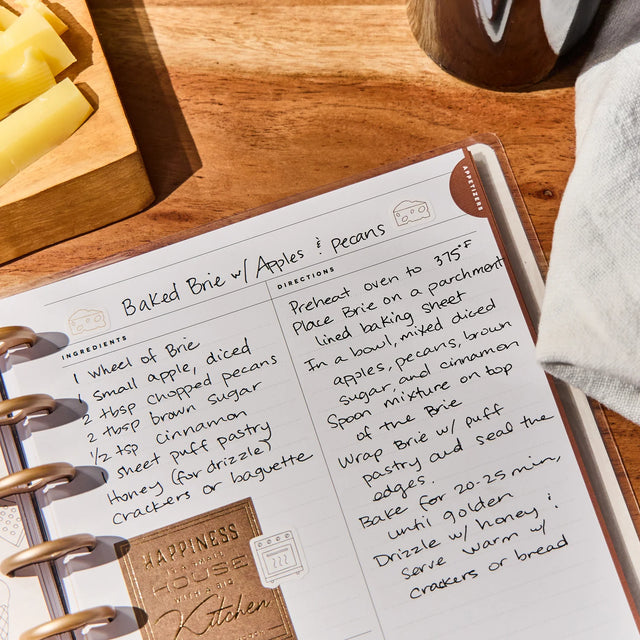 APPETIZERS
Baked Brie w/ Apples & pecans
INGREDIENTS
1 wheel of Brie
1 small apple, diced
2 tbsp chopped pecans
2 tbsp brown sugar
1/2 tsp cinnamon
1 sheet puff pastry
Honey (for drizzle)
crackers or baguette
HAPPINESS
IS A SMALL
HOUSE
WITH A BIG
Kitchen
DIRECTIONS
Preheat oven to 375°F
Place Brie on a parchment
lined baking sheet
In a bowl, mixed diced
apples, pecans, brown
sugar, and cinnamon
Spoon mixture on top
of the Brie
Wrap Brie w/ puff
pastry and seal the
edges.
Bake for 20-25 min,
until golden
Drizzle w/ honey &
serve warm w/
crackers or bread